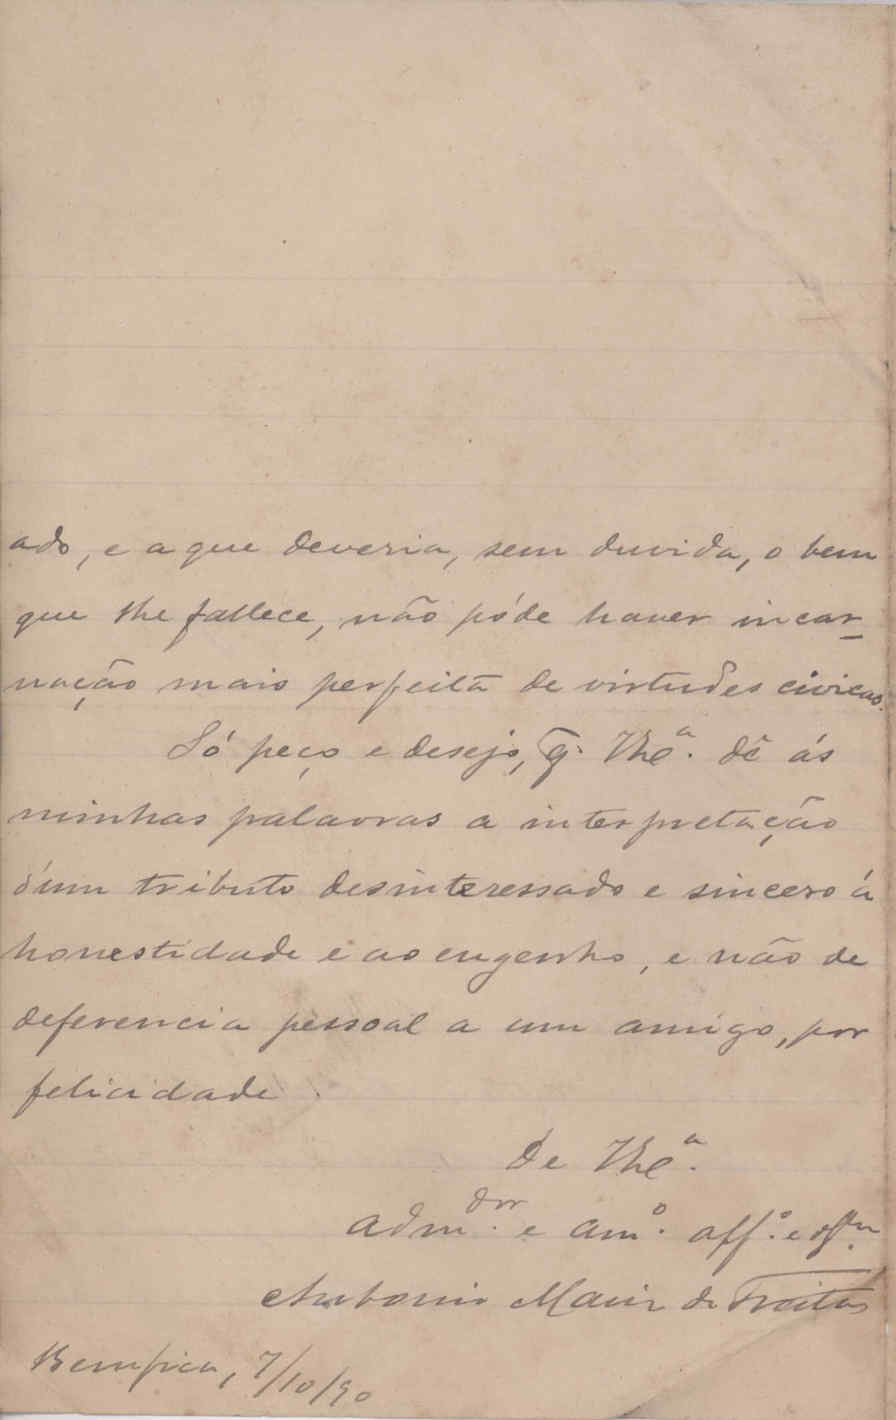 ado, e a que deveria, sem duvida, o bem
que lhe fallece, não póde haver incar-
nação mais perfeita de virtudes civicas.
Só peço e desejo, q. V. Exª. dê ás
minhas palavras a interpretação
d'um tributo desinteressado e sincero á
honestidade e ao engenho, e não de
deferencia pessoal a um amigo, por
felicidade
De V. Exª.
adm.dor e am.º aff.º e
Antonio Maria de Freitas
Bemfica, 7/10/90